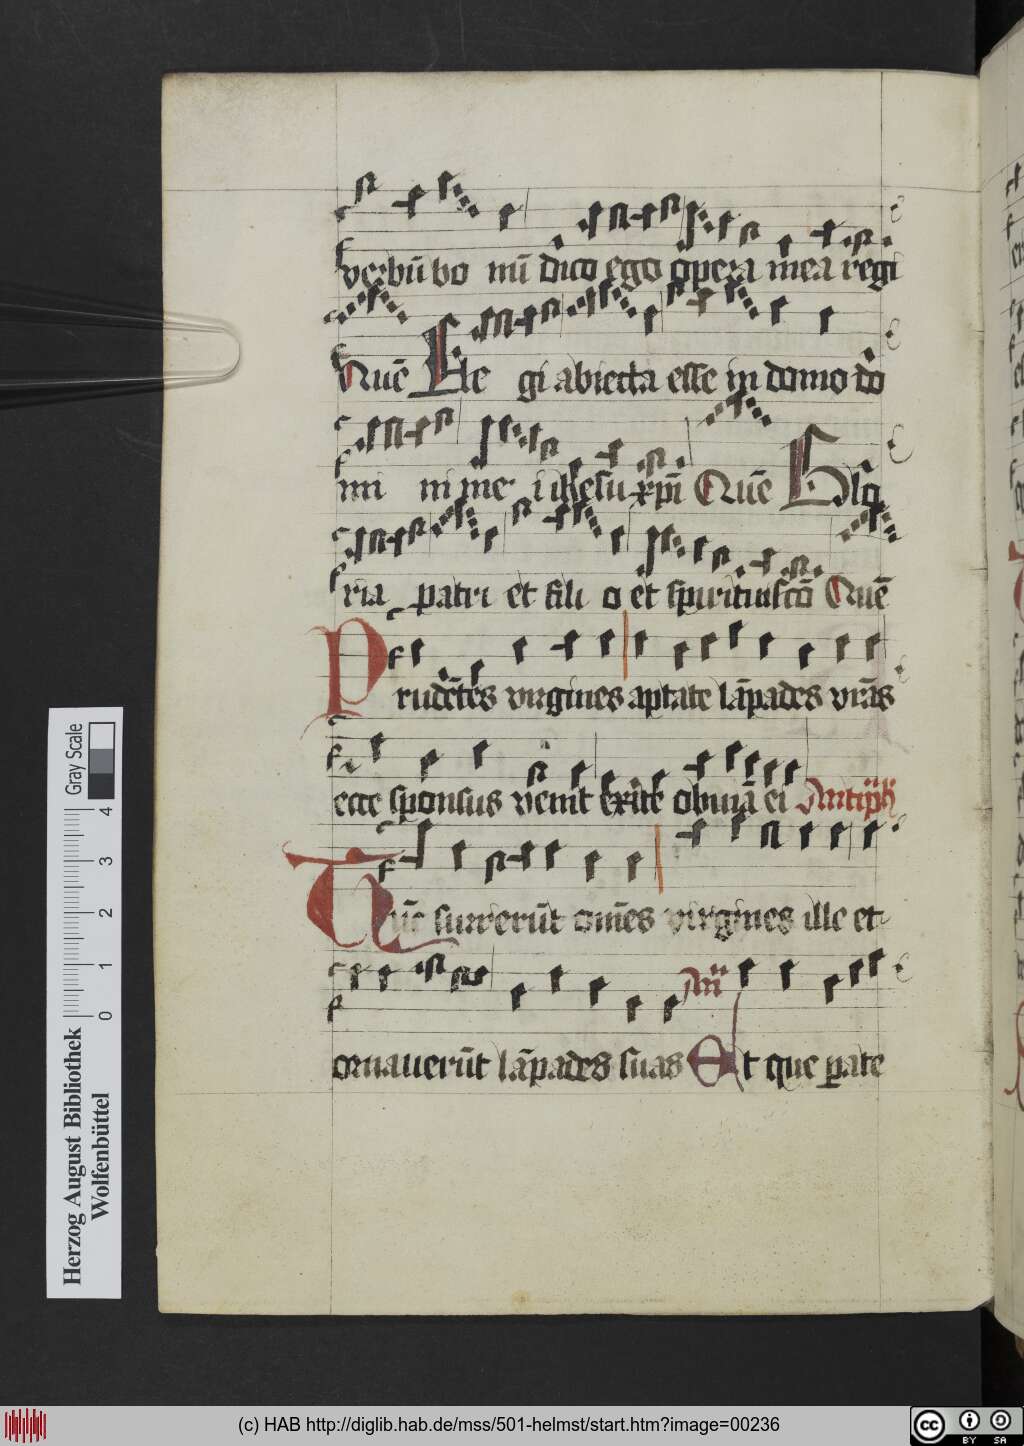 verbū bo nū dico ego opera mea regi
Quē Ele gi abiecta esse in domo do
mi ni me i ihesu xp̄i Quē Glo
ria patri et fili o et spiritui scō Quē
Prudētes virgines aptate lāpades vrās
ecce sponsus venit exite obuiā ei Antiph
Tūc surrerūt om̄es virgines ille et
ornauerūt lāpades suas An̄ Et que parate
Herzog August Bibliothek
Wolfenbüttel
Gray Scale
0 1 2 3 4
(c) HAB http://diglib.hab.de/mss/501-helmst/start.htm?image=00236
cc BY SA